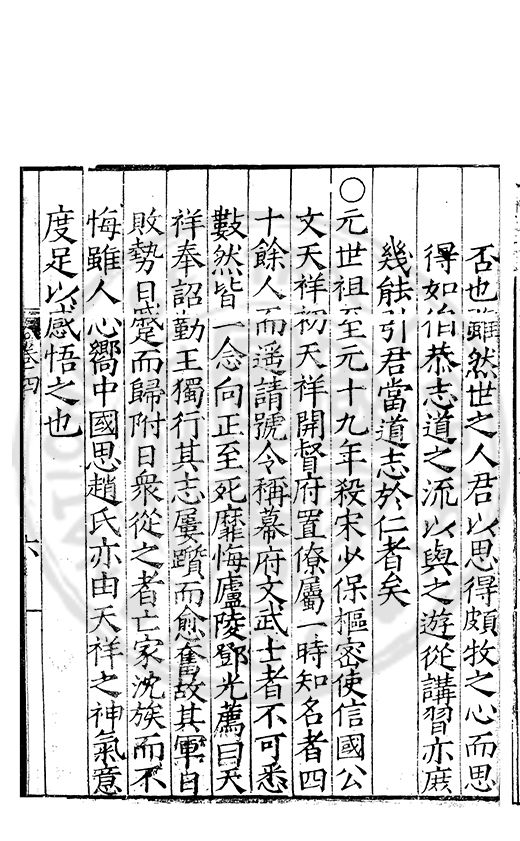 否也雖然世之人君以思得頗牧之心而思
得如伯恭志道之流以與之遊從講習亦庶
幾能引君當道志於仁者矣
○元世祖至元十九年殺宋少保樞密使信國公
文天祥初天祥開督府置僚屬一時知名者四
十餘人而遥請號令稱幕府文武士者不可悉
數然皆一念向正至死靡悔廬陵鄧光薦曰天
祥奉詔勤王獨行其志屢躓而愈奮故其軍日
敗勢日蹙而歸附日衆從之者亡家沈族而不
悔雖人心嚮中國思趙氏亦由天祥之神氣意
度足以感悟之也
卷四
六